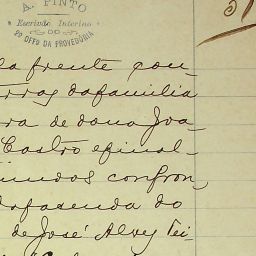 A. PINTO
Escrivão Interino
DO OFFO DA PROVEDORIA
la frente con-
rras dafamilia
ra de dona Joa-
Castro efinal-
confron-
dafasenda do
de José Alves Fei-